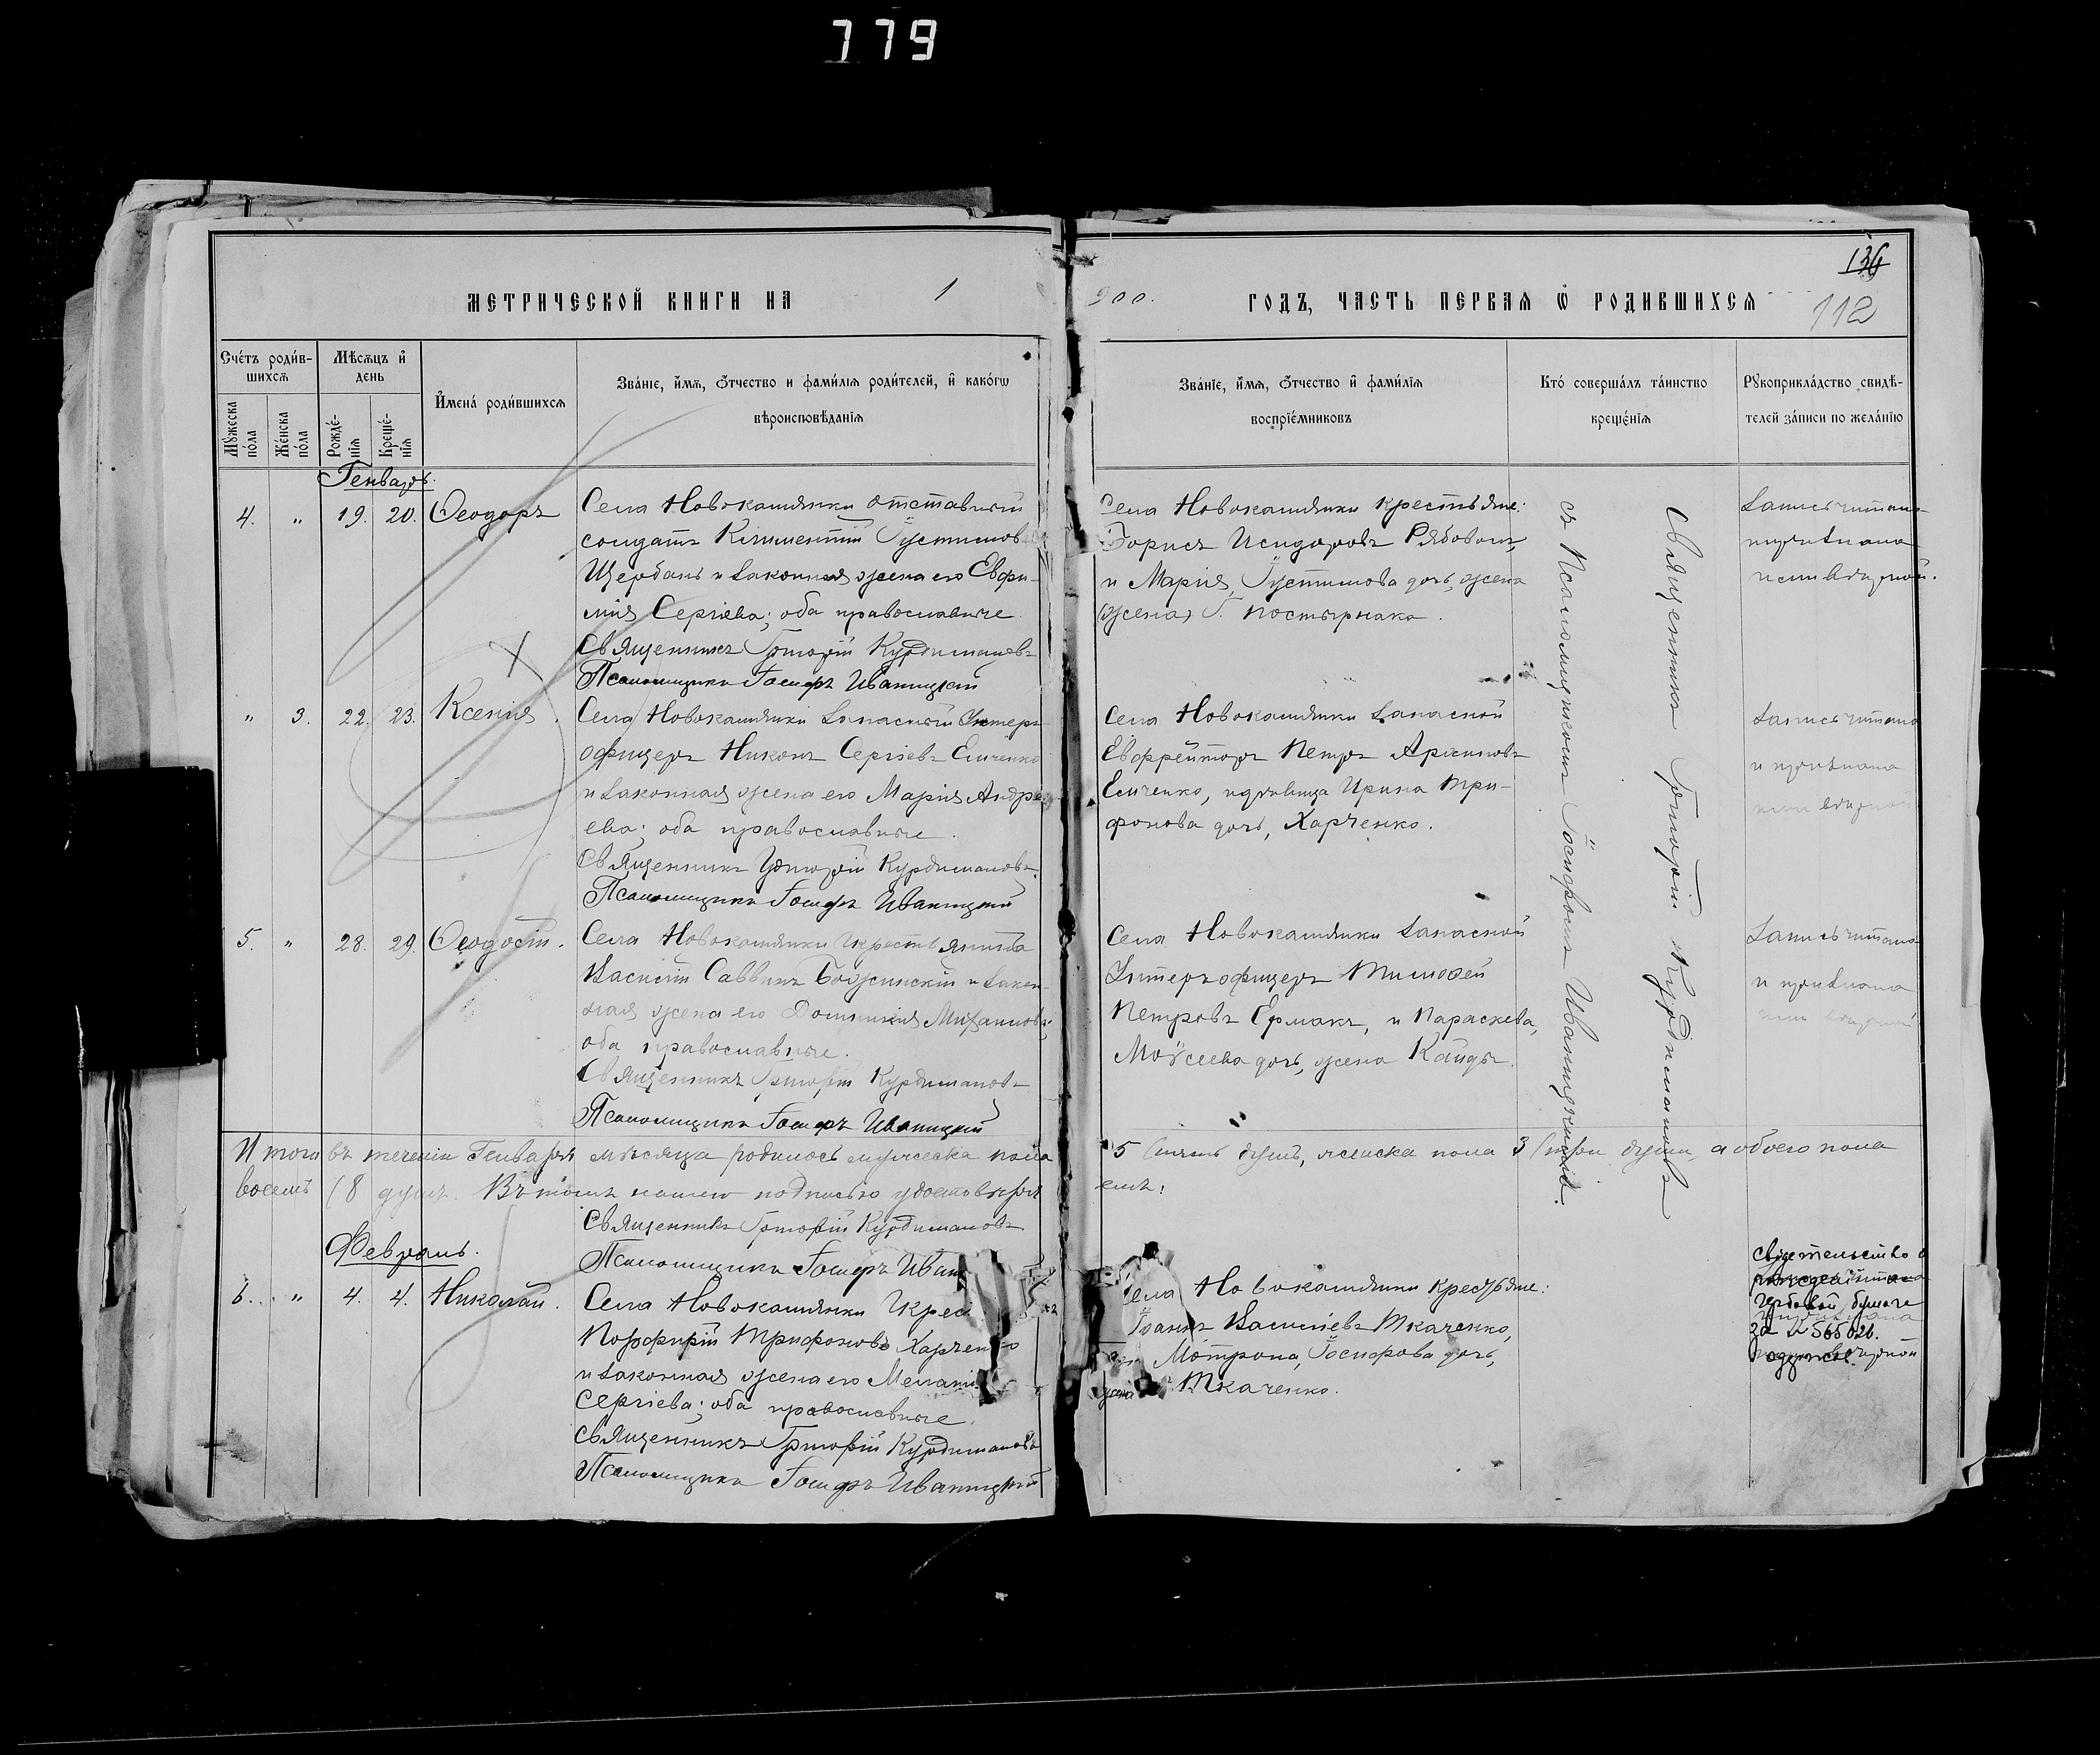 779
136
МЕТРИЧЕСКОЙ КНИГИ НА 1
900. ГОДЪ, ЧАСТЬ ПЕРВАЯ Ѿ РОДИВШИХСЯ
112
Счéтъ роди́в-
шихсѧ
Мѣ́сѧцъ и҆
день
Мꙋ́жеска
по́ла
Же́нска
по́ла
Рожде́-
нїѧ
Креще́-
нїѧ
И҆мена́ роди́вшихсѧ
Зва́нїе, и҆́мѧ, ѻ҆́тчество и фами́лїѧ роди́телей, и҆ како́гѡ
вѣроисповѣ́данїѧ
Зва́нїе, и҆́мѧ, ѻ҆́тчество и҆ фами́лїѧ
воспрїе́мниковъ
Кто́ соверша́лъ та́инство
креще́нїѧ
Рꙋкоприкла́дство свидѣ́-
телей за́писи по жела́нїю
Генварь.
4. " 19. 20. Ѳеодоръ
Села Новокашянки отставный
солдатъ Климентій Іустиновъ
Щербань и законная жена его Евфи-
мія Сергіева; оба православные
Священникъ Григорій Курдимановъ
Псаломщикъ Іосифъ Иваницкій
Села Новокашянки крестьяне:
Борисъ Исидоровъ Рябовол,
и Марія, Іустинова дочь, жена
(жена) Г. Постырнака.
Запись читана
" 3. 22. 23. Ксенія.
Села Новокашянки Запасный Унтеръ
офицеръ Никонъ Сергіевъ Емченко
и законная жена его Марія Андре-
ева; оба православные.
Священникъ Григорій Курдимановъ
Псаломщикъ Іосифъ Иваницкій
Села Новокашянки Запасной
Ефрейторъ Петръ Архиповъ
Емченко, и дѣвица Ирина Три-
фонова дочь, Харченко.
Запись читана
и признана
5. " 28. 29. Ѳеодосій.
Села Новокашянки Крестьянинъ
Василій Саввинъ Божинскій и закон-
ная жена его Домникія Михаилова;
оба православные.
Священникъ Григорій Курдимановъ
Псаломщикъ Іосифъ Иваницкій
Села Новокашянки Запасной
Унтеръ офицеръ Тимофей
Петровъ Ермакъ, и Параскева,
Моѵсеева дочь, жена Кайды.
Запись читана
и признана
Священникъ Григорій Курдимановъ
съ Псаломщикомъ Іосифомъ Иваницкимъ.
Итого въ теченіи Генваря мѣсяца родилось мужеска пола
5 (пять душъ, женска пола 3 (три души, а обоего пола
восемь (8 душъ. Въ томъ нашею подписью удостовѣряемъ:
Священникъ Григорій Курдимановъ
Псаломщикъ Іосифъ Иван
Февраль.
6. " 4. 4. Николай.
Села Новокашянки Крес
Порфирій Трифоновъ Харченко
и законная жена его Мелані
Сергіева; оба православные.
Священникъ Григорій Курдимановъ
Псаломщикъ Іосифъ Иваницкій
Села Новокашянки крестьяне:
Іоаннъ Василіевъ Ткаченко,
Мотрона, Іосифова дочь,
жена Ткаченко.
Свидетельство о
гербовой бумаге
за № 565026.